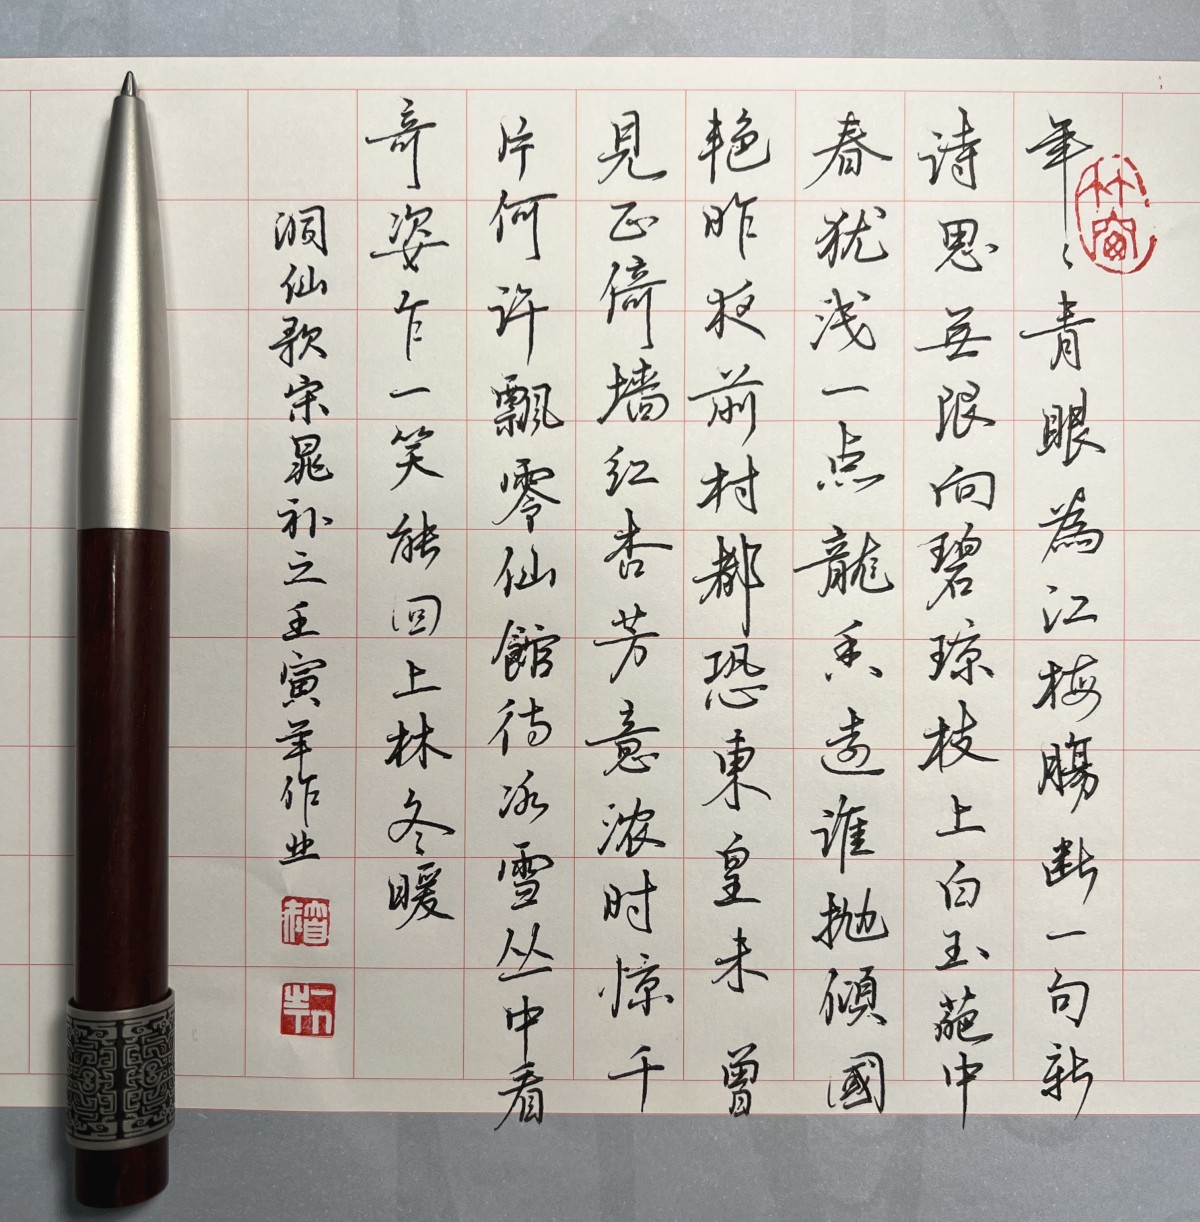 年〻青眼為江梅腸断一句新
诗思無限向碧琼枝上白玉葩中
春犹浅一点龍香遠谁抛傾國
艳昨夜前村都恐東皇未曾
見正倚墙红杏芳意浓时惊千
片何许飄零仙館待冰雪丛中看
奇姿乍一笑能回上林冬暖
洞仙歌宋晁补之壬寅年作业